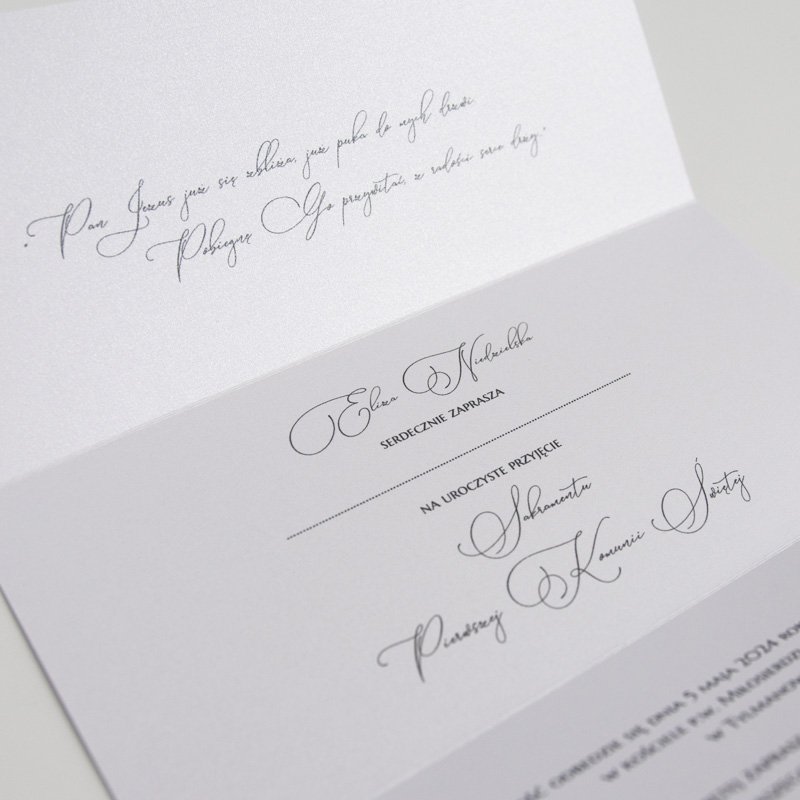 "Pan Jezus już się zbliża, już puka do mych drzwi
Pobiegnę Go przywitać, z radości serce drży."
Eliza Niedzielska
SERDECZNIE ZAPRASZA
NA UROCZYSTE PRZYJĘCIE
Sakramentu
Pierwszej Komunii Świętej
ODBĘDZIE SIĘ DNIA 5 MAJA 2024 ROKU
W KOŚCIELE P.W. MIŁOSIERDZIA
W